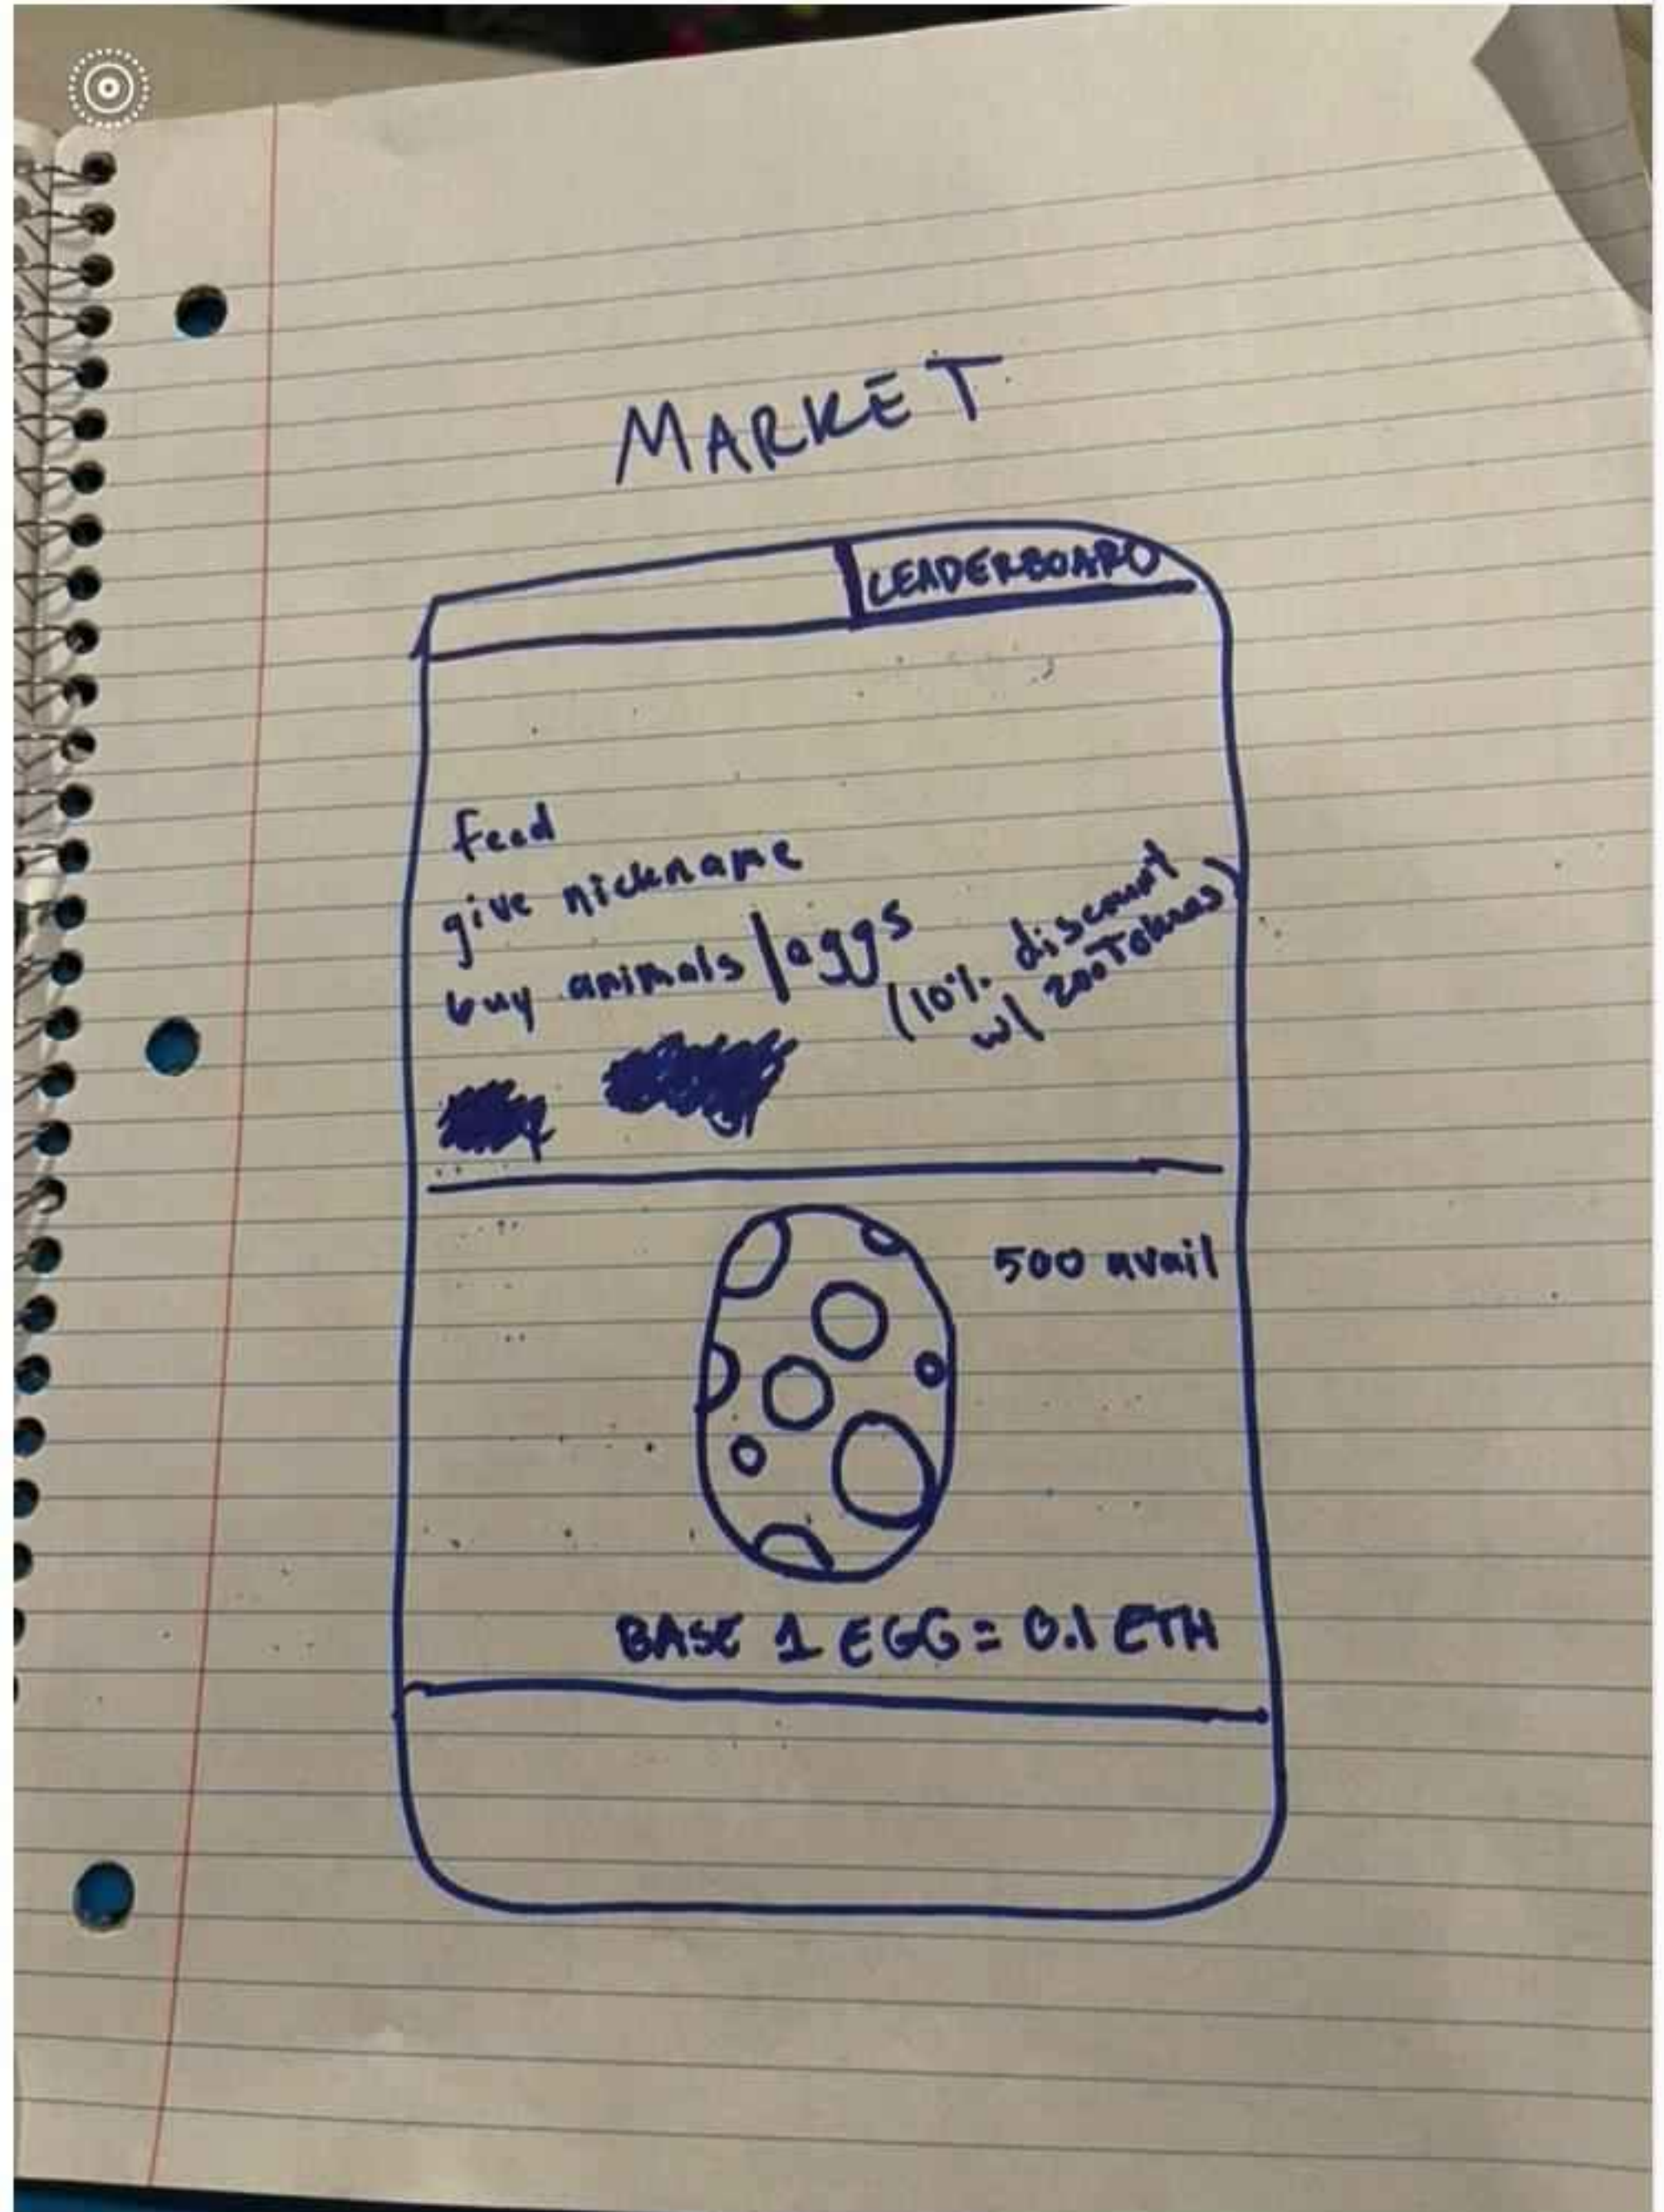 MARKET
LEADERBOARD
feed
give nickname
buy animals / eggs
(10% discount
w/ zooTokens)
500 avail
BASE 1 EGG = 0.1 ETH